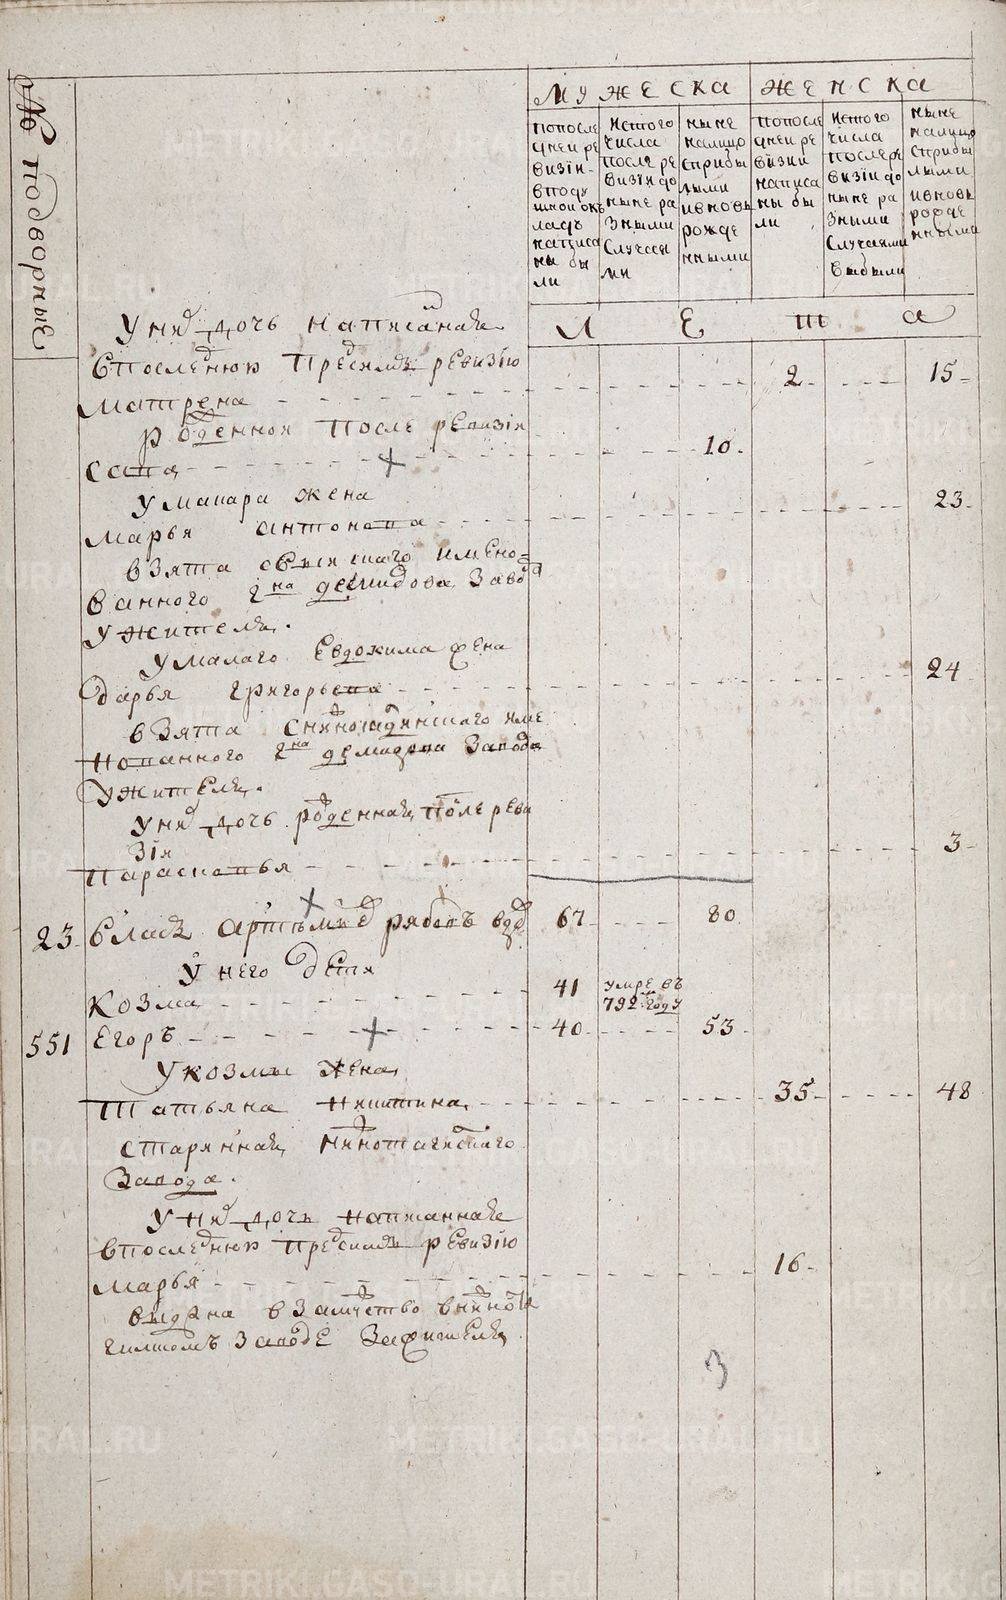 № подворные
МУЖЕСКА ЖЕНСКА
попосле
дней ре
визїи
вподу
шной окъ
ладъ
написа
ны бы
ли
истого
числа
после ре
визїи до
ныне ра
зными
случаи
ми
ныне
налицо
сприбы
лыми
ивновь
рожде
нными
попосле
дней ре
визїи
написа
ны бы
ли
истого
числа
после ре
визїи до
ныне ра
зными
случаями
выбыли
ныне
налицо
сприбы
лыми
ивновь
рожде
нными
Л Е т а
Унихъ дочь написаная
Впоследнюю предсимъ ревизїю
Матрена 2 15
Рожденной после ревизїи
Сава 10
У макара жена
Марья антонова 23
взята
ванного гна демидова завода
У жителя.
Умалаго Евдокима жена
Дарья григорьева 24
взята имe
нованного гна демидова завода
Ужителя.
Унихъ дочь рожденная после реви
зїи
Парасковья 3
23 Власъ Артемьевъ рябовъ 67 80
У него дети
Козма 41 умре въ
792 году
551 Егоръ 40 53
У козмы жена
Татьяна Никитина 35 48
старинная нижнотагилскаго
Завода.
У нихъ дочь написанная
впоследнюю предсимъ ревизїю
Марья 16
выдана взамужство внижнота
гилскомъ заводе За жителя
3
METRIKI.GASO-URAL.RU